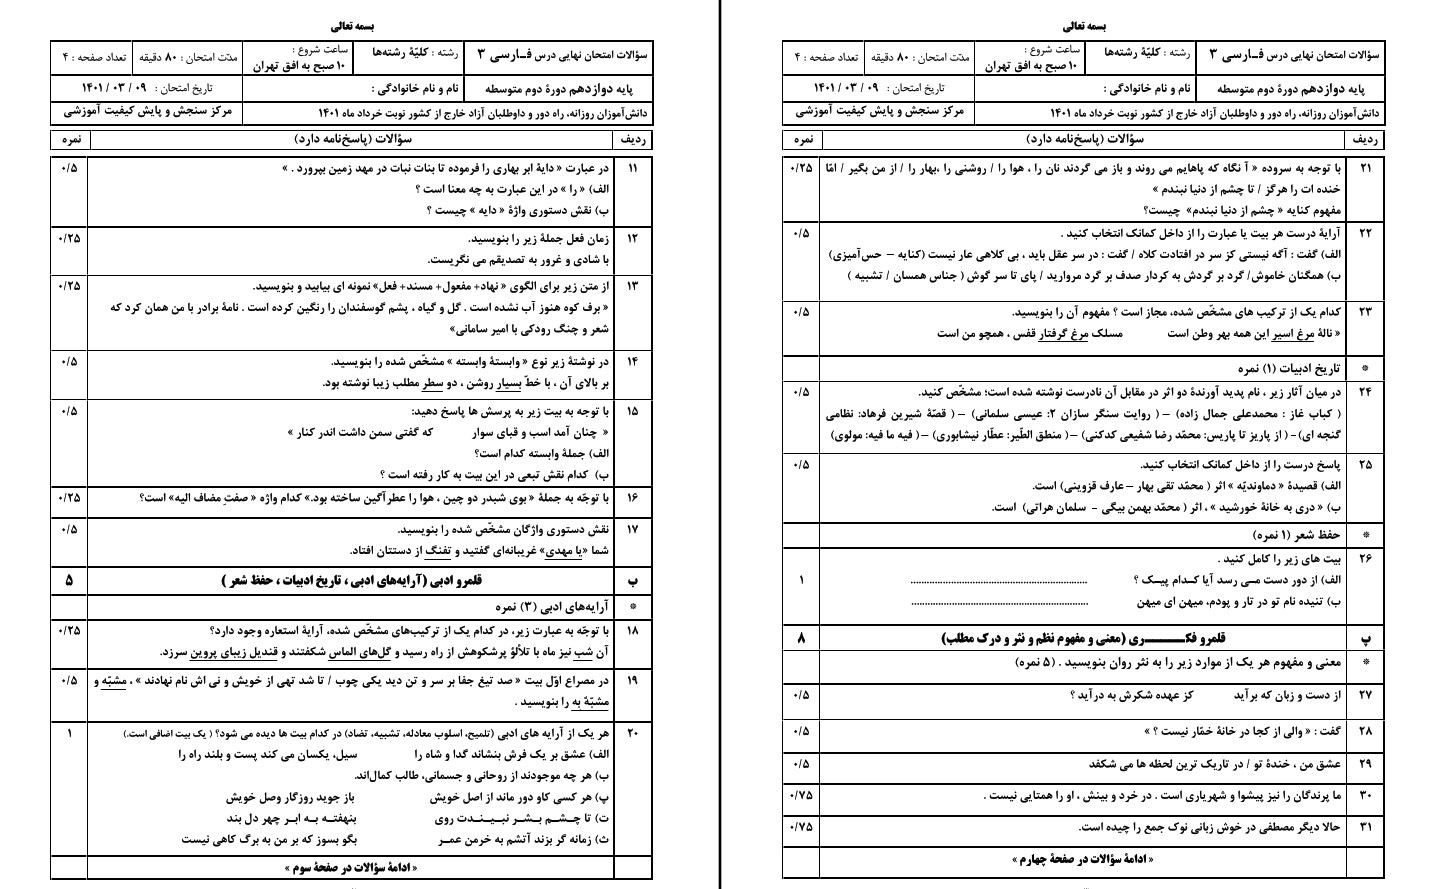 بسمه تعالی
سؤالات امتحان نهایی درس فـارسی ۳
رشته : کلیّهٔ رشته‌ها
ساعت شروع :
۱۰ صبح به افق تهران
مدّت امتحان : ۸۰ دقیقه
تعداد صفحه : ۴
پایه دوازدهم دورهٔ دوم متوسطه
نام و نام خانوادگی :
تاریخ امتحان : ۰۹ / ۰۳ / ۱۴۰۱
دانش‌آموزان روزانه، راه دور و داوطلبان آزاد خارج از کشور نوبت خرداد ماه ۱۴۰۱
مرکز سنجش و پایش کیفیت آموزشی
ردیف سؤالات (پاسخ‌نامه دارد) نمره
۱۱ در عبارت « دایهٔ ابر بهاری را فرموده تا بنات نبات در مهد زمین بپرورد . » ۰/۵
الف) « را » در این عبارت به چه معنا است ؟
ب) نقش دستوری واژهٔ « دایه » چیست ؟
۱۲ زمان فعل جملهٔ زیر را بنویسید. ۰/۲۵
با شادی و غرور به تصدیقم می نگریست.
۱۳ از متن زیر برای الگوی « نهاد+ مفعول+ مسند+ فعل» نمونه ای بیابید و بنویسید. ۰/۲۵
« برف کوه هنوز آب نشده است . گل و گیاه ، پشم گوسفندان را رنگین کرده است . نامهٔ برادر با من همان کرد که
شعر و چنگ رودکی با امیر سامانی»
۱۴ در نوشتهٔ زیر نوع « وابستهٔ وابسته » مشخّص شده را بنویسید. ۰/۵
بر بالای آن ، با خطّ بسیار روشن ، دو سطر مطلب زیبا نوشته بود.
۱۵ با توجه به بیت زیر به پرسش ها پاسخ دهید: ۰/۵
« چنان آمد اسب و قبای سوار که گفتی سمن داشت اندر کنار »
الف) جملهٔ وابسته کدام است؟
ب) کدام نقش تبعی در این بیت به کار رفته است ؟
۱۶ با توجّه به جملهٔ « بوی شبدر دو چین ، هوا را عطرآگین ساخته بود.» کدام واژه « صفتِ مضاف الیه» است؟ ۰/۲۵
۱۷ نقش دستوری واژگان مشخّص شده را بنویسید. ۰/۵
شما «یا مهدی» غریبانه‌ای گفتید و تفنگ از دستتان افتاد.
ب قلمرو ادبی (آرایه‌های ادبی ، تاریخ ادبیات ، حفظ شعر ) ۵
* آرایه‌های ادبی (۳) نمره
۱۸ با توجّه به عبارت زیر، در کدام یک از ترکیب‌های مشخّص شده، آرایهٔ استعاره وجود دارد؟ ۰/۲۵
آن شب نیز ماه با تلألؤ پرشکوهش از راه رسید و گل‌های الماس شکفتند و قندیل زیبای پروین سرزد.
۱۹ در مصراع اوّل بیت « صد تیغ جفا بر سر و تن دید یکی چوب / تا شد تهی از خویش و نی اش نام نهادند » ، مشبّه و ۰/۵
مشبّهٌ به را بنویسید .
۲۰ هر یک از آرایه های ادبی (تلمیح، اسلوب معادله، تشبیه، تضاد) در کدام بیت ها دیده می شود؟ ( یک بیت اضافی است.) ۱
الف) عشق بر یک فرش بنشاند گدا و شاه را سیل، یکسان می کند پست و بلند راه را
ب) هر چه موجودند از روحانی و جسمانی، طالب کمال‌اند.
پ) هر کسی کاو دور ماند از اصل خویش باز جوید روزگار وصل خویش
ت) تا چـشـم بـشـر نـبـیـنـدت روی بنهفتـه بـه ابـر چهر دل بند
ث) زمانه گر بزند آتشم به خرمن عمـر بگو بسوز که بر من به برگ کاهی نیست
« ادامهٔ سؤالات در صفحهٔ سوم »
بسمه تعالی
سؤالات امتحان نهایی درس فـارسی ۳
رشته : کلیّهٔ رشته‌ها
ساعت شروع :
۱۰ صبح به افق تهران
مدّت امتحان : ۸۰ دقیقه
تعداد صفحه : ۴
پایه دوازدهم دورهٔ دوم متوسطه
نام و نام خانوادگی :
تاریخ امتحان : ۰۹ / ۰۳ / ۱۴۰۱
دانش‌آموزان روزانه، راه دور و داوطلبان آزاد خارج از کشور نوبت خرداد ماه ۱۴۰۱
مرکز سنجش و پایش کیفیت آموزشی
ردیف سؤالات (پاسخ‌نامه دارد) نمره
۲۱ با توجه به سروده « آ نگاه که پاهایم می روند و باز می گردند نان را ، هوا را / روشنی را ،بهار را / از من بگیر / امّا ۰/۲۵
خنده ات را هرگز / تا چشم از دنیا نبندم »
مفهوم کنایه « چشم از دنیا نبندم» چیست؟
۲۲ آرایهٔ درست هر بیت یا عبارت را از داخل کمانک انتخاب کنید . ۰/۵
الف) گفت : آگه نیستی کز سر در افتادت کلاه / گفت : در سر عقل باید ، بی کلاهی عار نیست (کنایه – حس‌آمیزی)
ب) همگنان خاموش/ گرد بر گردش به کردار صدف بر گرد مروارید / پای تا سر گوش ( جناس همسان / تشبیه )
۲۳ کدام یک از ترکیب های مشخّص شده، مجاز است ؟ مفهوم آن را بنویسید. ۰/۵
« نالهٔ مرغ اسیر این همه بهر وطن است مسلک مرغ گرفتار قفس ، همچو من است
* تاریخ ادبیات (۱) نمره
۲۴ در میان آثار زیر ، نام پدید آورندهٔ دو اثر در مقابل آن نادرست نوشته شده است؛ مشخّص کنید. ۰/۵
( کباب غاز : محمدعلی جمال زاده) – ( روایت سنگر سازان ۲: عیسی سلمانی) – ( قصّهٔ شیرین فرهاد: نظامی
گنجه ای)- ( از پاریز تا پاریس: محمّد رضا شفیعی کدکنی) –( منطق الطّیر: عطّار نیشابوری) –( فیه ما فیه: مولوی)
۲۵ پاسخ درست را از داخل کمانک انتخاب کنید. ۰/۵
الف) قصیدهٔ « دماوندیّه » اثر ( محمّد تقی بهار –عارف قزوینی) است.
ب) « دری به خانهٔ خورشید » ، اثر ( محمّد بهمن بیگی – سلمان هراتی) است.
* حفظ شعر (۱ نمره)
۲۶ بیت های زیر را کامل کنید .
الف) از دور دست مـی رسد آیا کـدام پیـک ؟ ................................................................ ۱
ب) تنیده نام تو در تار و پودم، میهن ای میهن ................................................................
پ قلمرو فکـــــــــری (معنی و مفهوم نظم و نثر و درک مطلب) ۸
* معنی و مفهوم هر یک از موارد زیر را به نثر روان بنویسید . (۵ نمره)
۲۷ از دست و زبان که برآید کز عهده شکرش به درآید ؟ ۰/۵
۲۸ گفت : « والی از کجا در خانهٔ خمّار نیست ؟ » ۰/۵
۲۹ عشق من ، خندهٔ تو / در تاریک ترین لحظه ها می شکفد ۰/۵
۳۰ ما پرندگان را نیز پیشوا و شهریاری است . در خرد و بینش ، او را همتایی نیست . ۰/۷۵
۳۱ حالا دیگر مصطفی در خوش زبانی نوک جمع را چیده است. ۰/۷۵
« ادامهٔ سؤالات در صفحهٔ چهارم »